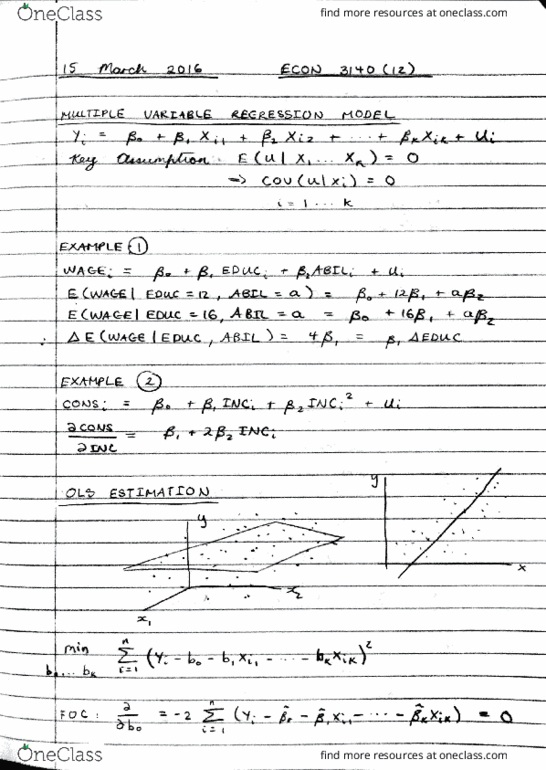 OneClass find more resources at oneclass.com
15 March 2016 ECON 3140 (12)
MULTIPLE VARIABLE REGRESSION MODEL
Yi = β0 + β1 Xi1 + β2 Xi2 + ... + βk Xik + Ui
Key Assumption: E(u|X1...Xk) = 0
⇒ COV(u|xi) = 0
i = 1 ... k
EXAMPLE ①
WAGEi = β0 + β1 EDUCi + β2 ABILi + ui
E(WAGE| EDUC = 12, ABIL = a) = β0 + 12β1 + aβ2
E(WAGE| EDUC = 16, ABIL = a = β0 + 16β1 + aβ2
∴ ΔE(WAGE|EDUC, ABIL) = 4β1 = β1 ΔEDUC
EXAMPLE ②
CONSi = β0 + β1 INCi + β2 INCi² + ui
∂CONS/∂INC = β1 + 2β2 INCi
OLS ESTIMATION
y
y
x
x2
x1
min b0...bk Σ i=1 n (Yi - b0 - b1xi1 - ... - bkxik)²
FOC: ∂/∂b0 = -2 Σ i=1 n (Yi - β̂0 - β̂1xi1 - ... - β̂kxik) = 0
OneClass find more resources at oneclass.com